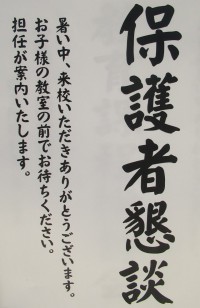 保護者懇談
暑い中、来校いただきありがとうございます。
お子様の教室の前でお待ちください。
担任が案内いたします。